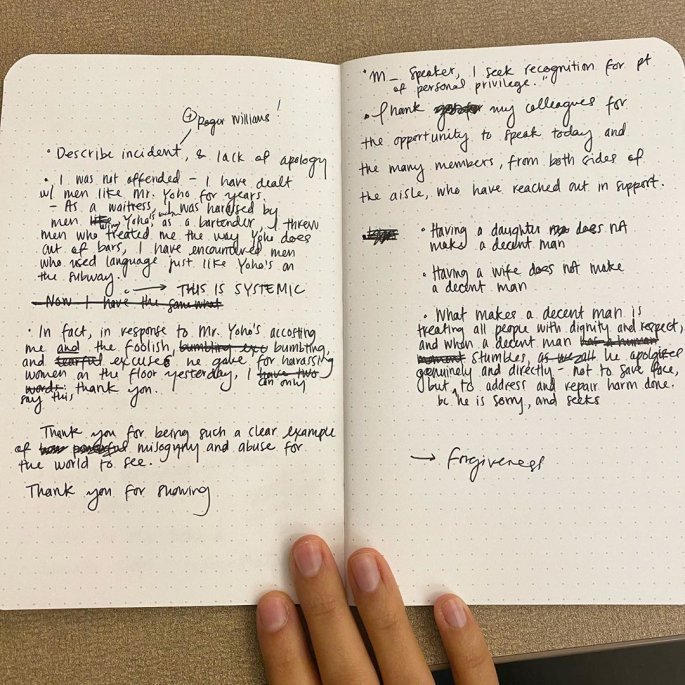 + Roger Williams
• Describe incident, & lack of apology
• I was not offended - I have dealt
w/ men like Mr. Yoho for years.
- As a waitress, I was harassed by
men like Yoho's when as a bartender, I threw
men who treated me the way Yoho does
out of bars, I have encountered men
who used language just like Yoho's on
the subway. → THIS IS SYSTEMIC
Now I have the same what
• In fact, in response to Mr. Yoho's accosting
me and the foolish, bumbling exc bumbling,
and tearful excuses he gave for harassing
women on the floor yesterday, I have two
words: can only
say this, thank you.
Thank you for being such a clear example
of how powerful misogyny and abuse for
the world to see.
Thank you for showing
• M_ Speaker, I seek recognition for pt
of personal privilege."
• Thank my colleagues for
the opportunity to speak today and
the many members, from both sides of
the aisle, who have reached out in support.
• Having a daughter does not
make a decent man
• Having a wife does not make
a decent man.
• What makes a decent man is
treating all people with dignity and respect,
and when a decent man has a human
moment stumbles, as we all he apologizes
genuinely and directly - not to save face,
but to address and repair harm done.
bc he is sorry, and seeks
→ forgiveness